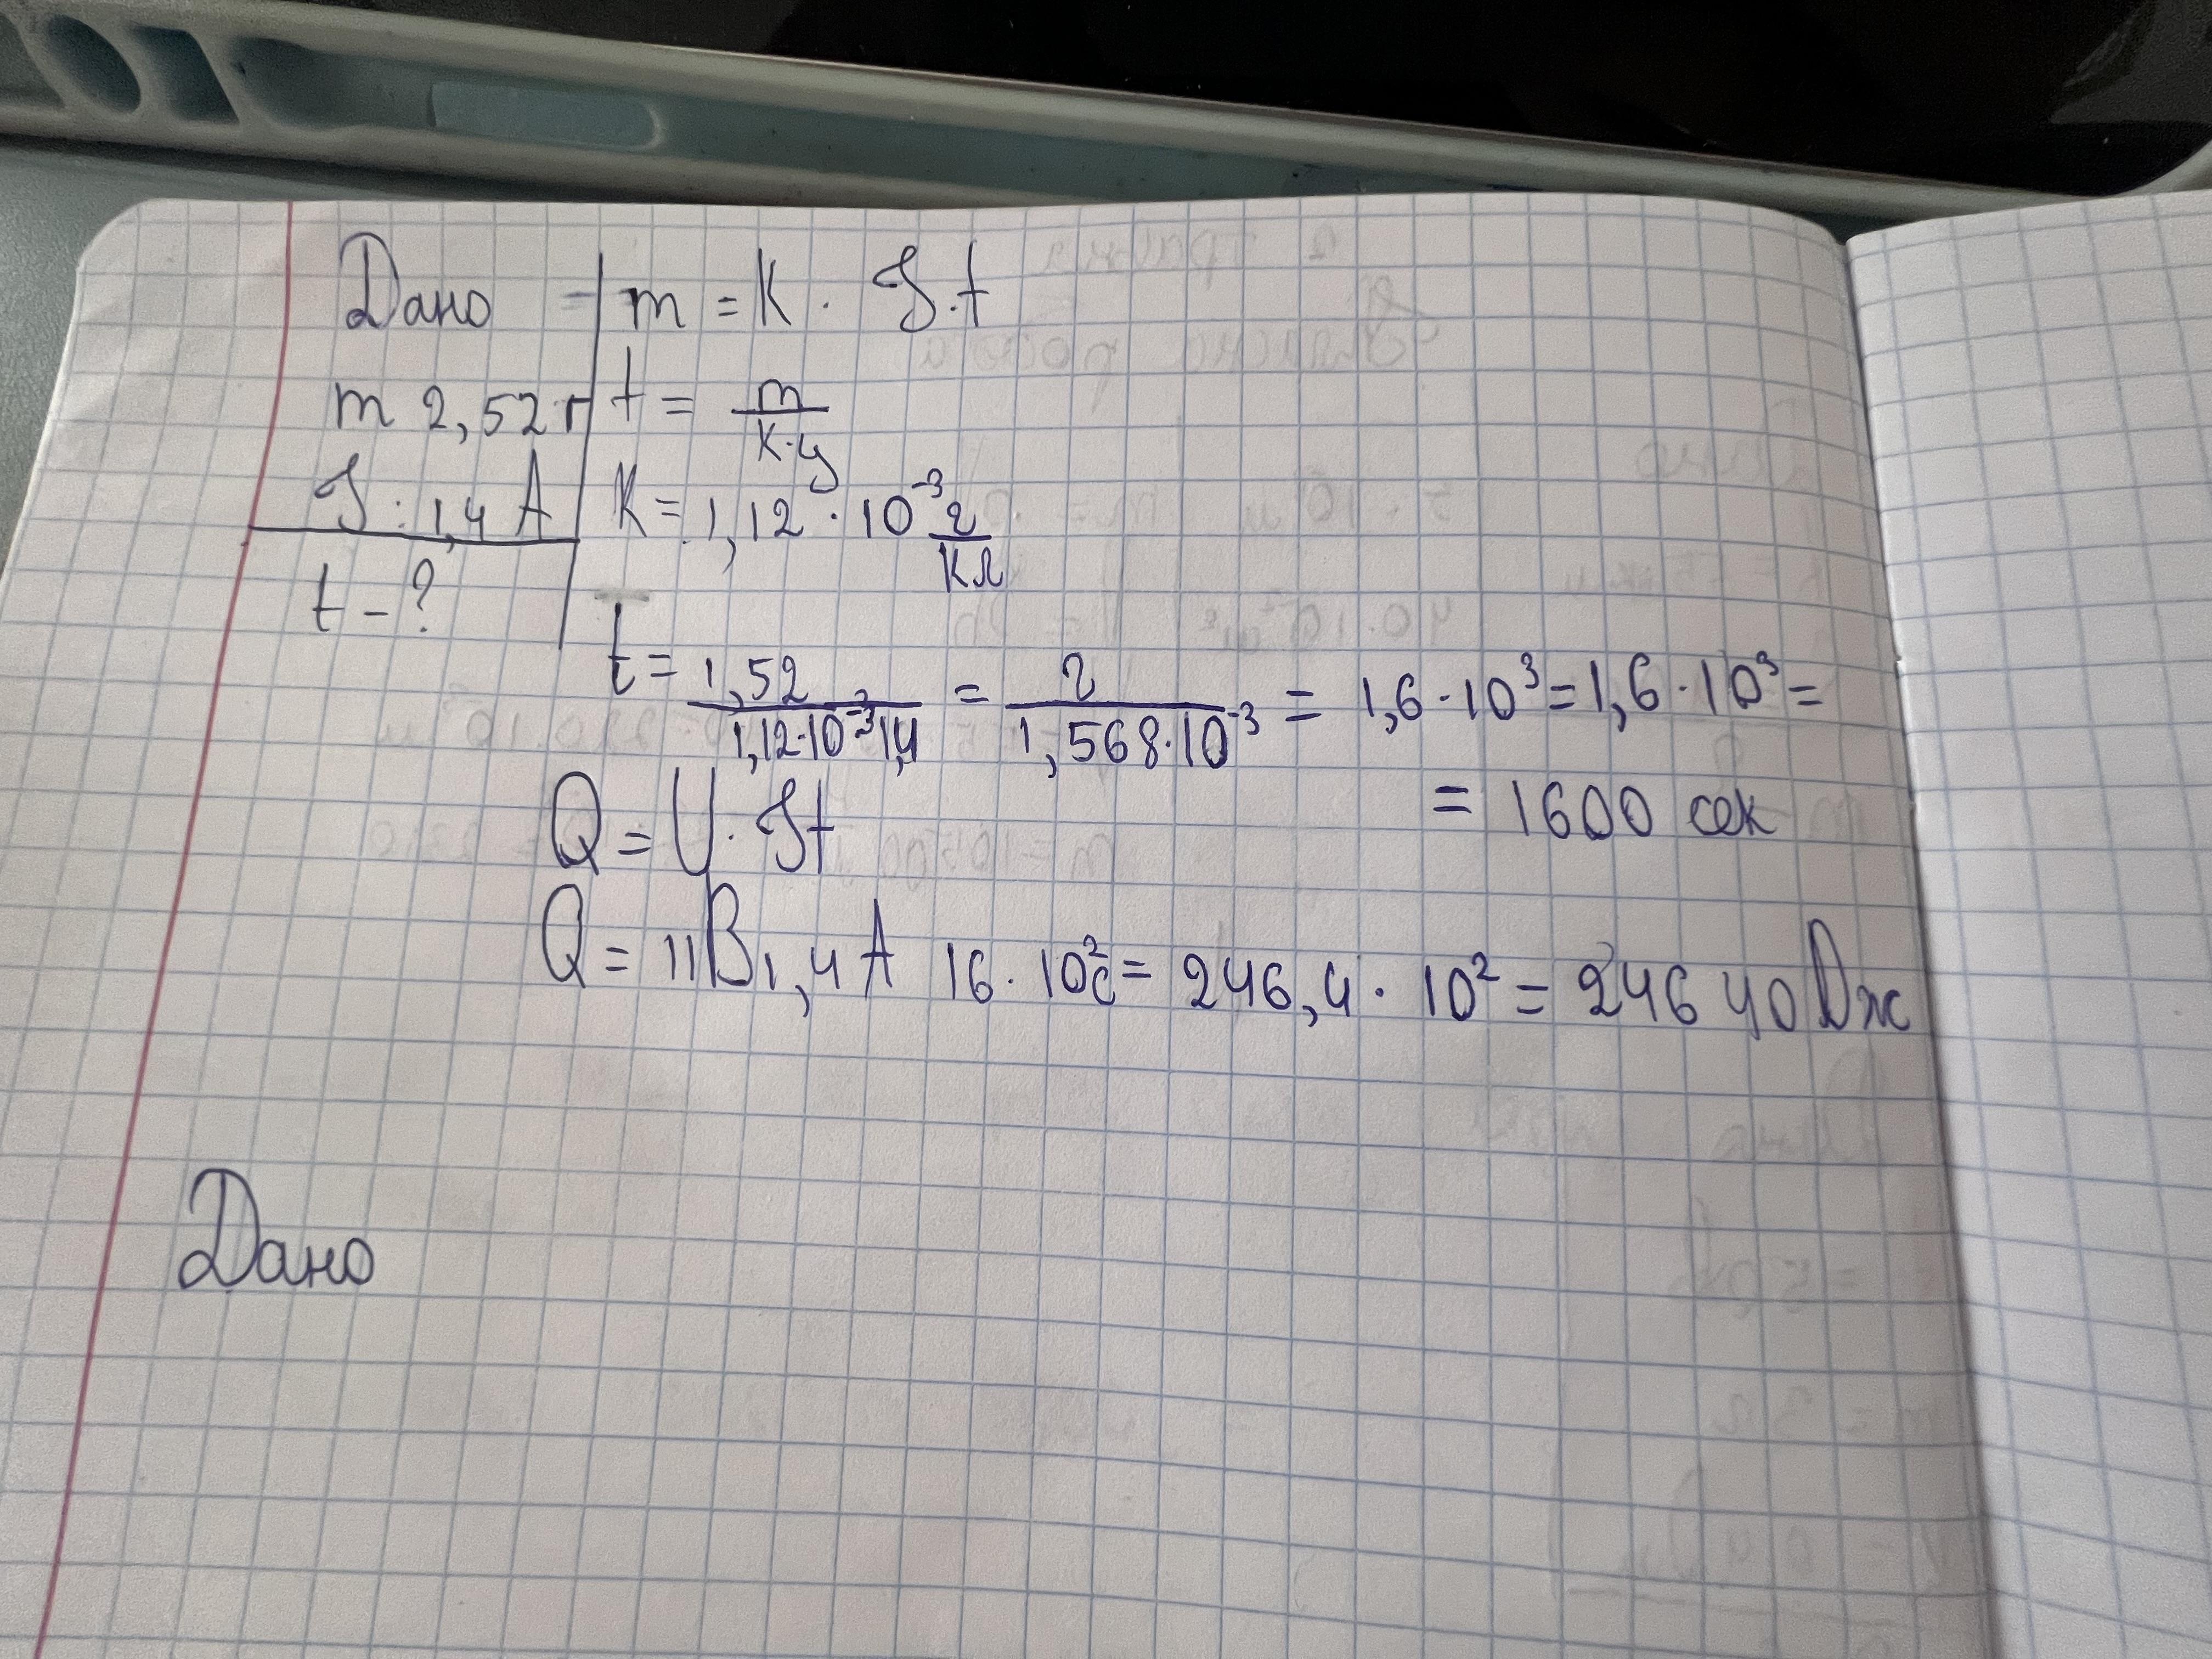 Дано
m 2,52 г
J : 1,4 A
t - ?
m = K · J · t
t = m / к·у
K = 1,12 · 10⁻³ г/Кл
t = 1,52 / 1,12·10⁻³ 1,4 = 2 / 1,568·10⁻³ = 1,6 · 10³ = 1,6 · 10³ =
= 1600 сек
Q = U · Jt
Q = 11В 1,4 A 16 · 10²с = 246,4 · 10² = 24640 Дж
Дано